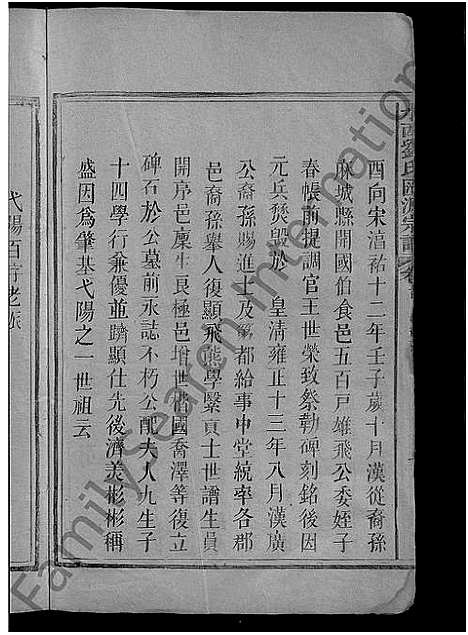 酉向宋淳祐十二年壬子歲十月漢從裔孫
麻城縣開國伯食邑五百戶雄飛公委姪子
春帳前提調官王世榮致祭勒碑刻銘後因
元兵燹毀於 皇清雍正十三年八月漢廣
公裔孫賜進士及第都給事中堂統率各郡
邑裔孫舉人復顯飛熊學緊貢士世譜生員
開序邑廩生良極邑增世濬國喬澤等復立
碑石於公墓前永誌不朽公配夫人九生子
十四學行兼優並躋顯仕先後濟美彬彬稱
盛因為肇基弋陽之一世祖云
FamilySearch International